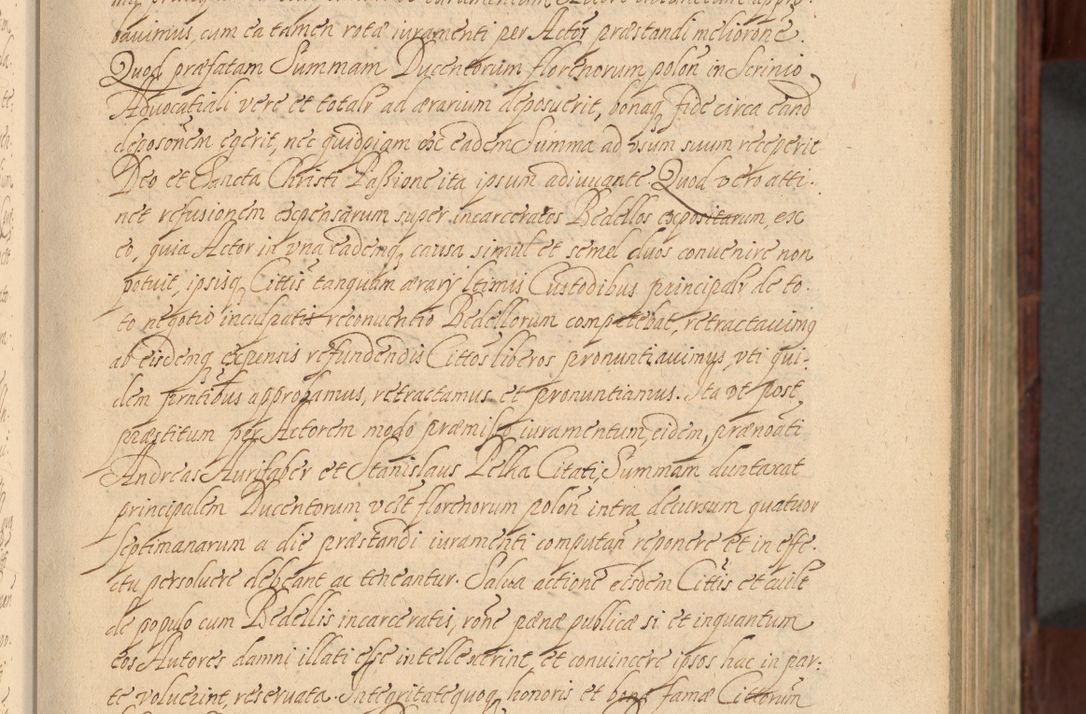 bauimus, cum ea tamen rotæ iuramenti per Actor præstandi meliorone.
Quod præfatam Summam Ducentorum florenorum polon in Scrinio
Aduocatiali vere et totalr ad ærarium deposuerit, bonaq fide circa eand
deposonem egerit, nec quidpiam ex eadem Summa ad vsum suum receperit
Deo et Sancta Christi Passione ita ipsum adiuuante Quod vero atti-
net refusionem expensarum super incarceratos Bedellos expositarum, ex
eo, quia Actor in vna eademq causa simul et semel duos conuenire non
potuit, ipsisq Cittis tanquam ærarij ltimis Custodibus principalr de to-
to negotio inculpatis reconuentio Bedellorum competebat, retractauimq
ab eisdemq expensis refundendis Cittos liberos pronuntiauimus, vti qui-
dem pntibus approbamus, retractamus et pronuntiamus. Ita vt post
præstitum per Actorem modo præmisso iuramentum, eidem, prænoati
Andreas Aurifaber et Stanislaus Pelka Citati, Summam duntaxat
principalem Ducentorum florenorum polon intra decursum quatuor
septimanarum a die præstandi iuramenti computan reponere et in effe-
ctu persoluere debeant ac teneantur. Salua actione eisdem Cittis et cuilt
de populo cum Bedellis incarceratis, rone pænæ publicæ si et inquantum
eos Autores damni illati esse intellexerint, et conuincere ipsos hac in par-
te voluerint, reseruata. Integritate quoq honoris et bonæ famæ Cittorum